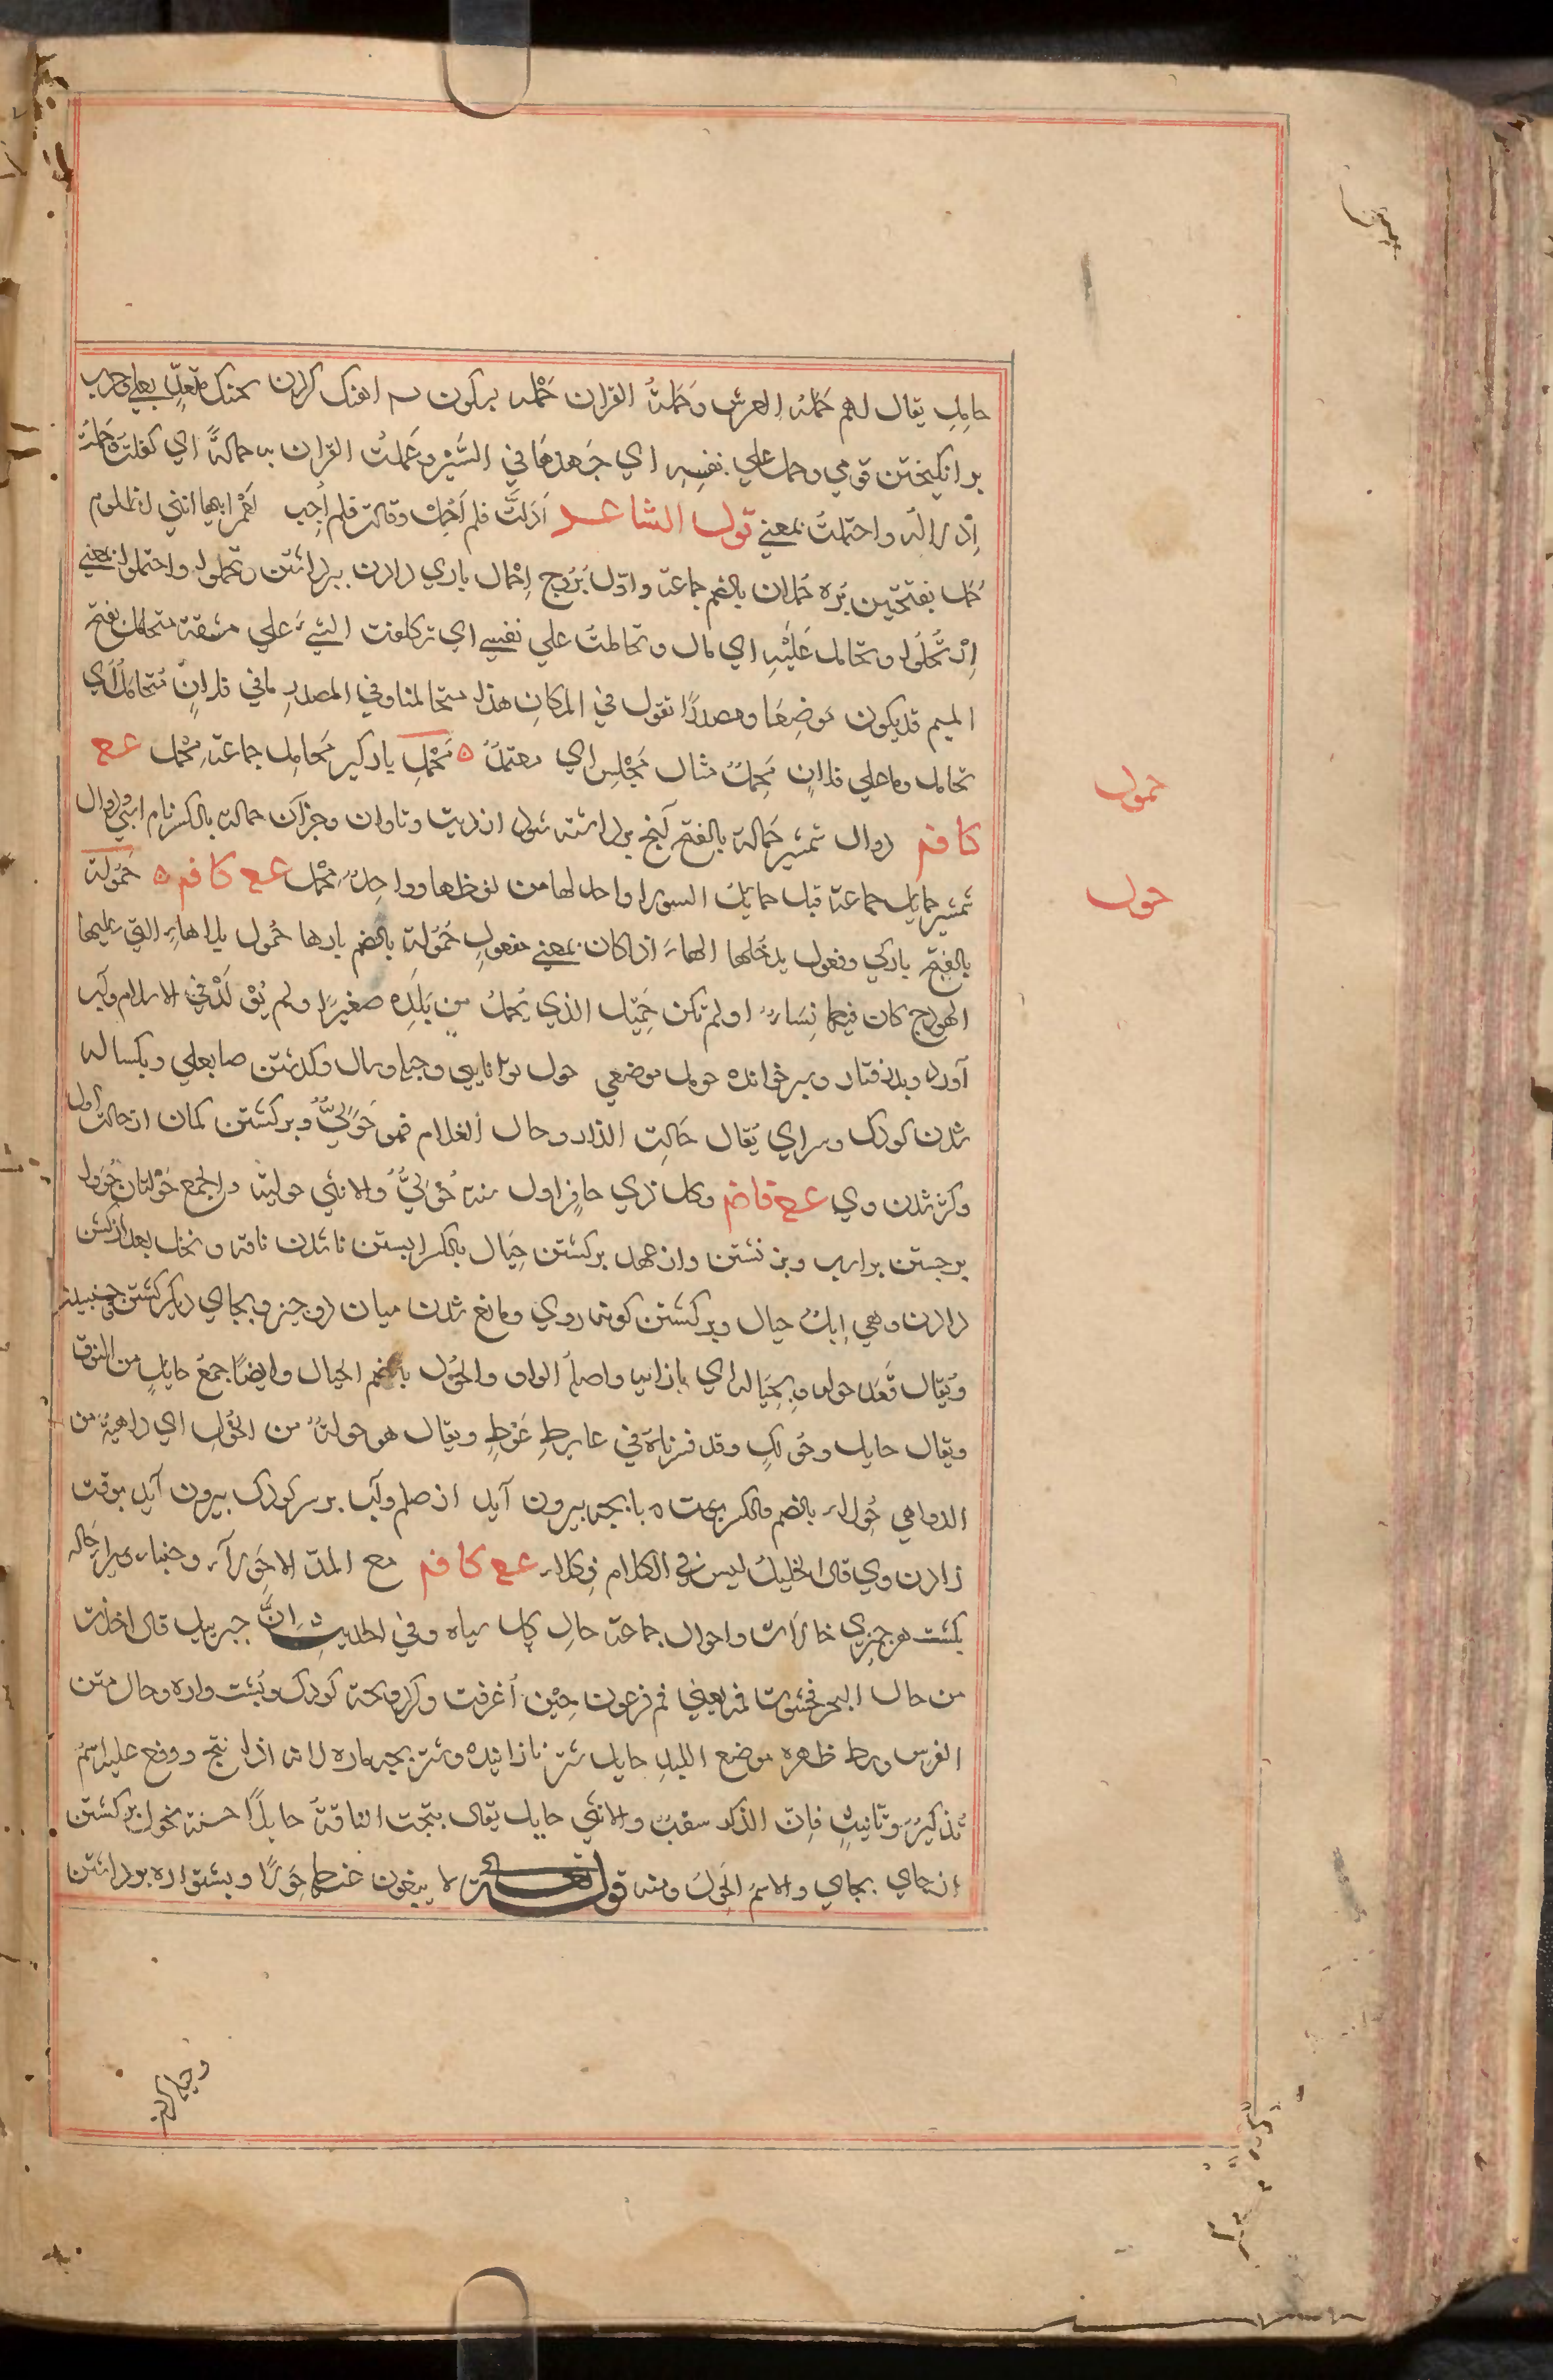 حامِل يقال لهم حَمَلَةُ العرش وحَمَلَةُ القرآن حَمْله بسكون م آهنک کردن بجنک متعدٍّ بعلي وبر
برانكيختن قومي وحمل علي نفسِهِ اي جَهدها في السَّيْر وحَملتُ القرآن به حمالةً اي كفلته حَملتُ
إدلاله واحتملتُ بمعني قول الشاعر اَدَلَّتْ فلم اَحْمِل وقالت فلم اُجِب لعَمْر ابيها انني لظلوم
حَمَل بفتحتين بَرّه حُملان بالضم جماعة واوّل بَرُوج اِحْمال باري دادن ببرداشتن وتحملوا واحتملوا بمعني
اِرْتَحَلُوا وتحامل عَلَيْهِ اي مال وتحاملتُ علي نفسي اي تركلفت الشيءَ علي مشقة متحامل بفتح
الميم قد يكون مَوضِعًا ومصدرًا تقول في المكان هذا متحاملنا وفي المصدرِ مافي فلانٍ مُتحامَلٌ اي
تحامل وما علي فلانٍ مَحْمِلٌ مثال مَجْلِس اي معتمَدٌ ٥ مَحْمِل بار كير مَحامِل جماعة مِحْمَل عـع
كا فم دوال شمشير حَمالة بالفتح آنچ برداشته شود از ديت وتاوان وجز آن حمالة بالكسر نام اسبي ودوال
شمشير حمايل جماعة قيل حمايل السور لا واحد لها من لفظها وواحِدٌ مِحْمَل عـع كا فم ٥ حَمُولة
بالفتح باركي وفعول يدخلها الهاءُ اذا كان بمعني مفعول حُمُولة بالضم بارها حُمُول بلا هاءٍ التي عليها
الهوادج كان فيها نِسَاءٌ او لم تكن حَمِيْل الذي يُحملُ من بَلَدِه صغيرًا ولم يُوْلَدْ في الاسلام وآب
آورد وپذرفتار وپسر خوانده حومل موضعي حول توانايي وجا وسال وكذشتن صا بعلي ويكساله
شدن كودك وسراي يُقال حَالتِ الدار وحال الغلام فهو حَوْليٌّ وبركشتن كمان از حالت اول
وكژ شدن وي عـع فا ضم وكل ذي حافرٍ اول سنة حَوْليٌّ والانثي حولية والجمع حَوْليات حُؤول
برجستن بر اسپ وبر نشتن واز عهد بركشتن حِيَال بالكسر ابستن ناشدن ناقه ونخل بعد از كشن
دادن وهي اِبلٌ حيال وبركشتن كونه روي ومانع شدن ميان دو چيز وبجاي ديكر كشتن وجنبيدن
ويُقال قَعَد حوله وبِحِيَاله اي بازائه واصله الواو والحُوْل بالضم الحيال وايضًا جمعُ حايلٍ من النوق
ويقال حايل وحُوْلَلٍ وقد فسرناه في عايط عُوْطٍ ويقال هو حولةٌ من الحُوَل اي داهيةٌ من
الدواهي حُوَلاء بالضم والكسر پوست ه با بچه بيرون آيد از صلم وآب بر سر كودك بيرون آيد بوقت
زادن وي قال الخليلُ ليس في الكلام فِعَلاء عـع كا فم مع المدّ الا حِوَلاء وعنباء وسيراء حاله
كشت هر چيزي حالات واحوال جماعة حال كل سياه وفي الحديث اِنَّ جبرييل قال اخذت
من حال البحر فحشوت فمه يعني فم فرعون حِيْن اُغرقت وكردونچه كودك وپُشت واره وحال متن
الفرس وسط ظهره موضع اللبد حايل شتر نازاينده وشتر بچه ماده لانه اذا نتج ووقع عليه اسمُ
تذكيرٍ وتانيثٍ فاِن الذكر سقبٌ والانثي حايل يقال نتجت الناقةُ حايلاً حسنة تحول بركشتن
از جاي بجاي والاسم الحِوَلُ ومنه قوله تعالي لا يبغون عنها حِوَلاً وپشتواره برداشتن
حمول
حول